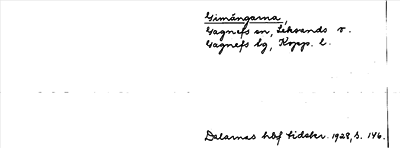 Gimångarna,
Gagnefs sn, Leksands v.
Gagnefs bg, Kopp. l.
Dalarnas hbf tidskr. 1928, s. 146.